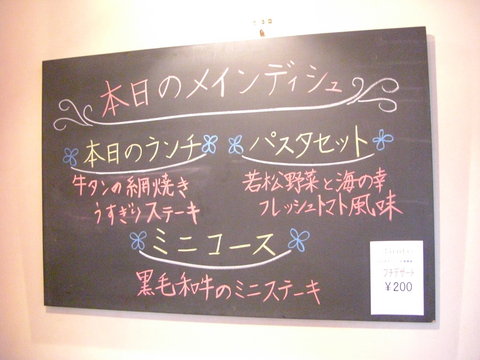 本日のメインディシュ
本日のランチ
牛タンの網焼き
うすぎりステーキ
パスタセット
若松野菜と海の幸
フレッシュトマト風味
ミニコース
黒毛和牛のミニステーキ
プチデザート
¥200